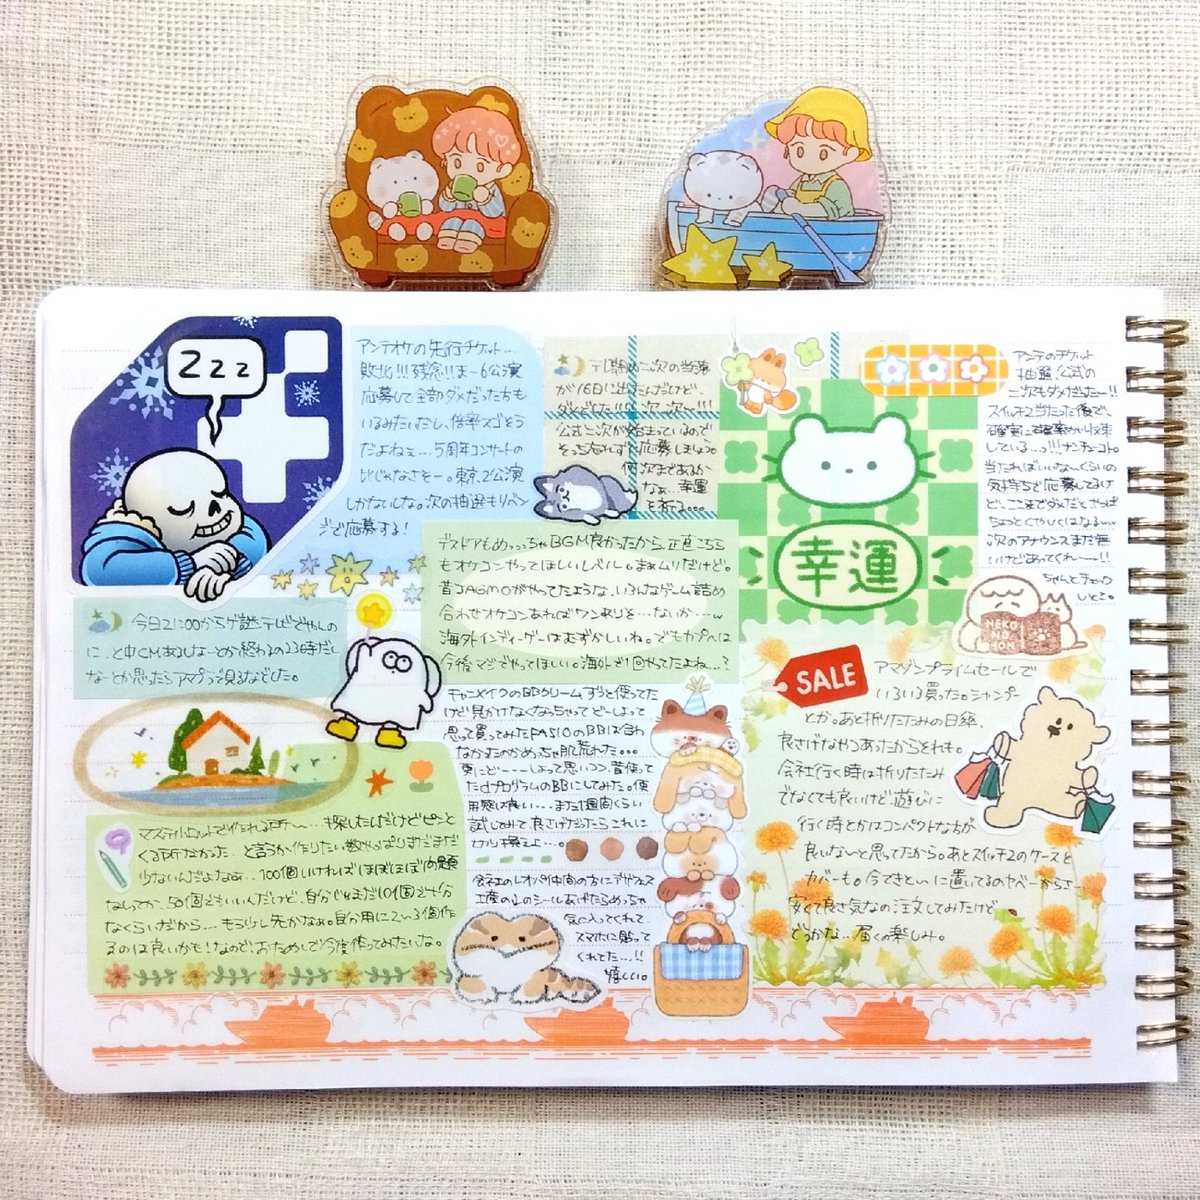 zzz
アンテオケの先行チケット...
敗北!!!残念!!まー6公演
応募して全部ダメだった方も
いるみたいだし、倍率スゴそう
だよねぇ...5周年コンサートの
比じゃなさそー。東京2公演
しかないしな。次の抽選もリベン
ジで応募する!
二次の当落
が16日に出たんだけど、
ダメでした!!
公式二次が始まっているので
そっち忘れず応募しましょう
何次まであるか
なぁ...幸運
を祈る...
幸運
アンテのチケット
抽選公式の
二次もダメだったー!!
スイッチ2当たった後で、
確実に確率が収束
している...っ!!!ナンテコト。
当たればいいなーくらいの
気持ちで応募してるけ
ど、ここまでダメだとやっぱ
ちょっとくやしくはなるw
次のアナウンスまだ無
いけどあってくれーー!!
ちゃんとチェック
しとこ。
デスドアもめっっちゃBGM良かったから、正直こちら
もオケコンやってほしいレベル。まぁムリだけど。
昔JAGMOがやってたような、いろんなゲーム詰め
合わせオケコンあればワンチャンを...ないか...w
海外インディーゲームはむずかしいね。でもカプへは
今後マジでやってほしい。海外で1回やってたよね...?
今日21:00からゲ謎テレビでやんの
に、と中CMあるしなーとか終わるの23時だし
なーとか思ったらアマプラで見るなどした。
NEKO
NO
HON
SALE
アマゾンプライムセールで
いろいろ買った。シャンプー
とか。あと折りたたみの日傘、
良さげなやつあったからそれも。
会社行く時は折りたたみ
でなくても良いけど遊びに
行く時とかはコンパクトな方が
良いなーと思ってたから。あとスイッチ2のケースと
カバーも。今できとーに置いてるのヤベーからさ...
安くて良さ気なの注文してみたけど
どうかな...届くの楽しみ。
キャンメイクのBBクリームずっと使ってた
けど見かけなくなっちゃってどーしよって
思って買ってみたFASIOのBBは合わ
なかったのかめっちゃ肌荒れた...
更にどーーーしよって思いつつ、昔使って
たdプログラムのBBにしてみた。使
用感は良い...また1週間くらい
試してみて良さげだったらこれに
切り換えよ...。
マステ小ロットで作れる所〜...探したんだけどピーンと
くる所なかった...と言うか作りたい数がやっぱりまだまだ
少ないんだよなぁ...100個いければほぼほぼほぼ問題
なしってか、50個でもいいんだけど、自分じゃまだ10個で十分
なくらいだから...もう少し先かなぁ。自分用に2〜3個作
るのは良いかも!なので、おためしで今度作ってみたいな。
会社のレオパ仲間の方にデザフェス
土産のシールあげたらめっちゃ
気に入ってくれて
スマホに貼って
くれてた...!!
嬉しい。